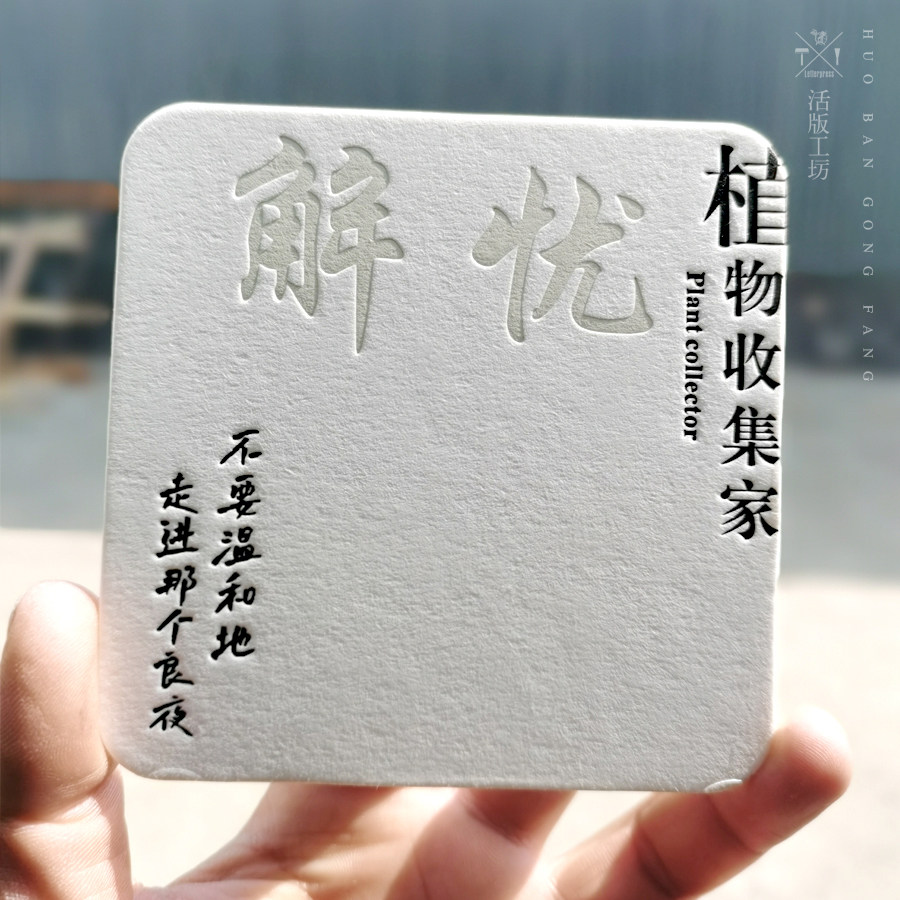 解忧
植物收集家
Plant collector
不要温和地
走进那个良夜
Letterpress
活版工坊
HUO BAN GONG FANG